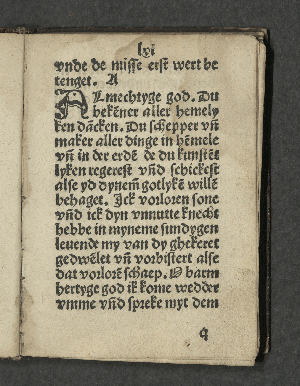 lvi
vnde de misse erst wert be
tenget. A
ALmechtyge god. Du
bekēner aller hemely
ken dācken. Du schepper vñ
maker aller dinge in hēmele
vñ in der erdē de du kunstēt
lyken regerest vñd schickest
alse yd dynem̄ gotlykē willē
behaget. Ick vorloren sone
vñd ick dyn vnnutte knecht
hebbe in myneme sundygen
leuende my van dy ghekeret
gedwēlet vñ vorbistert alse
dat vorlorē schaep. O barm
hertyge god ik kome wedder
vmme vñd spreke myt dem
q